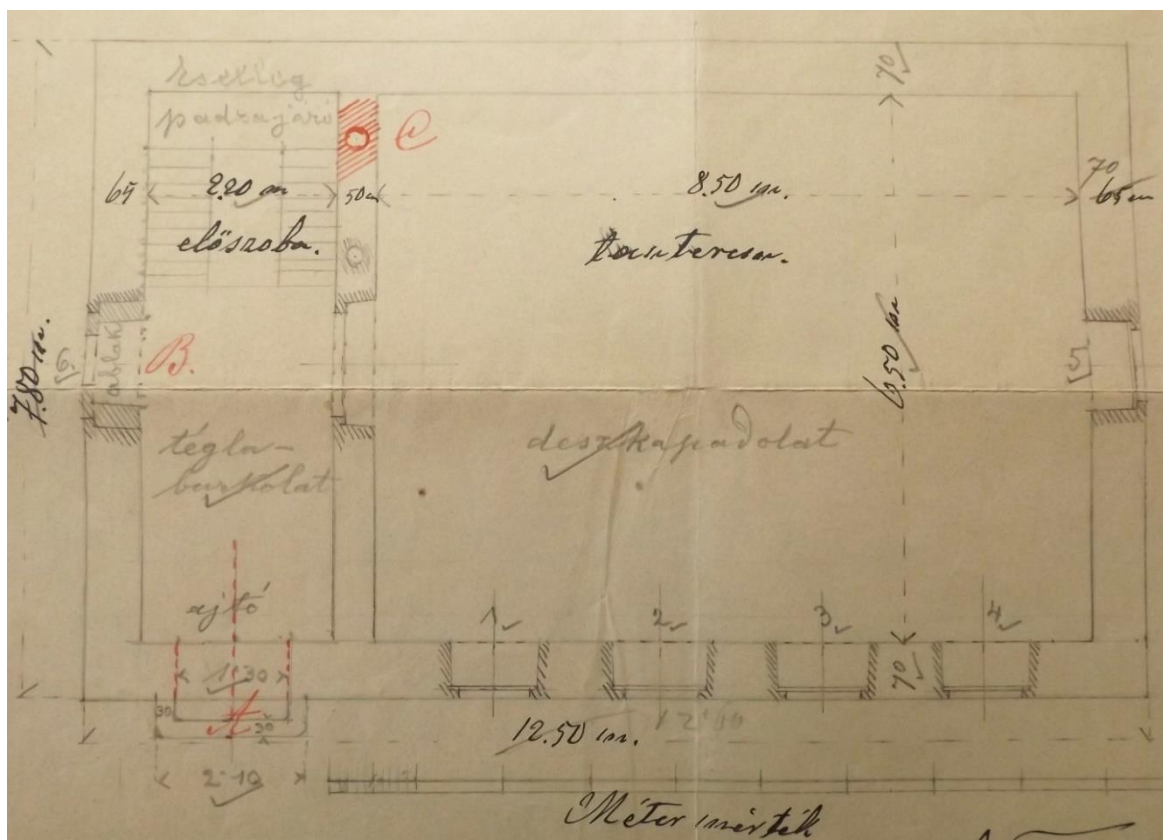 esetleg
padrajáró
C
70
65
2.20 m
50 cm
8.50 m.
70
65 cm
előszoba.
tanterem.
7.80 m.
6.
ablak
B.
6.50 m
5
tégla-
burkolat
deszkapadolat
ajtó
1
2
3
4
1·30
70
30
A
30
12.50 m.
2·10
Méter mérték